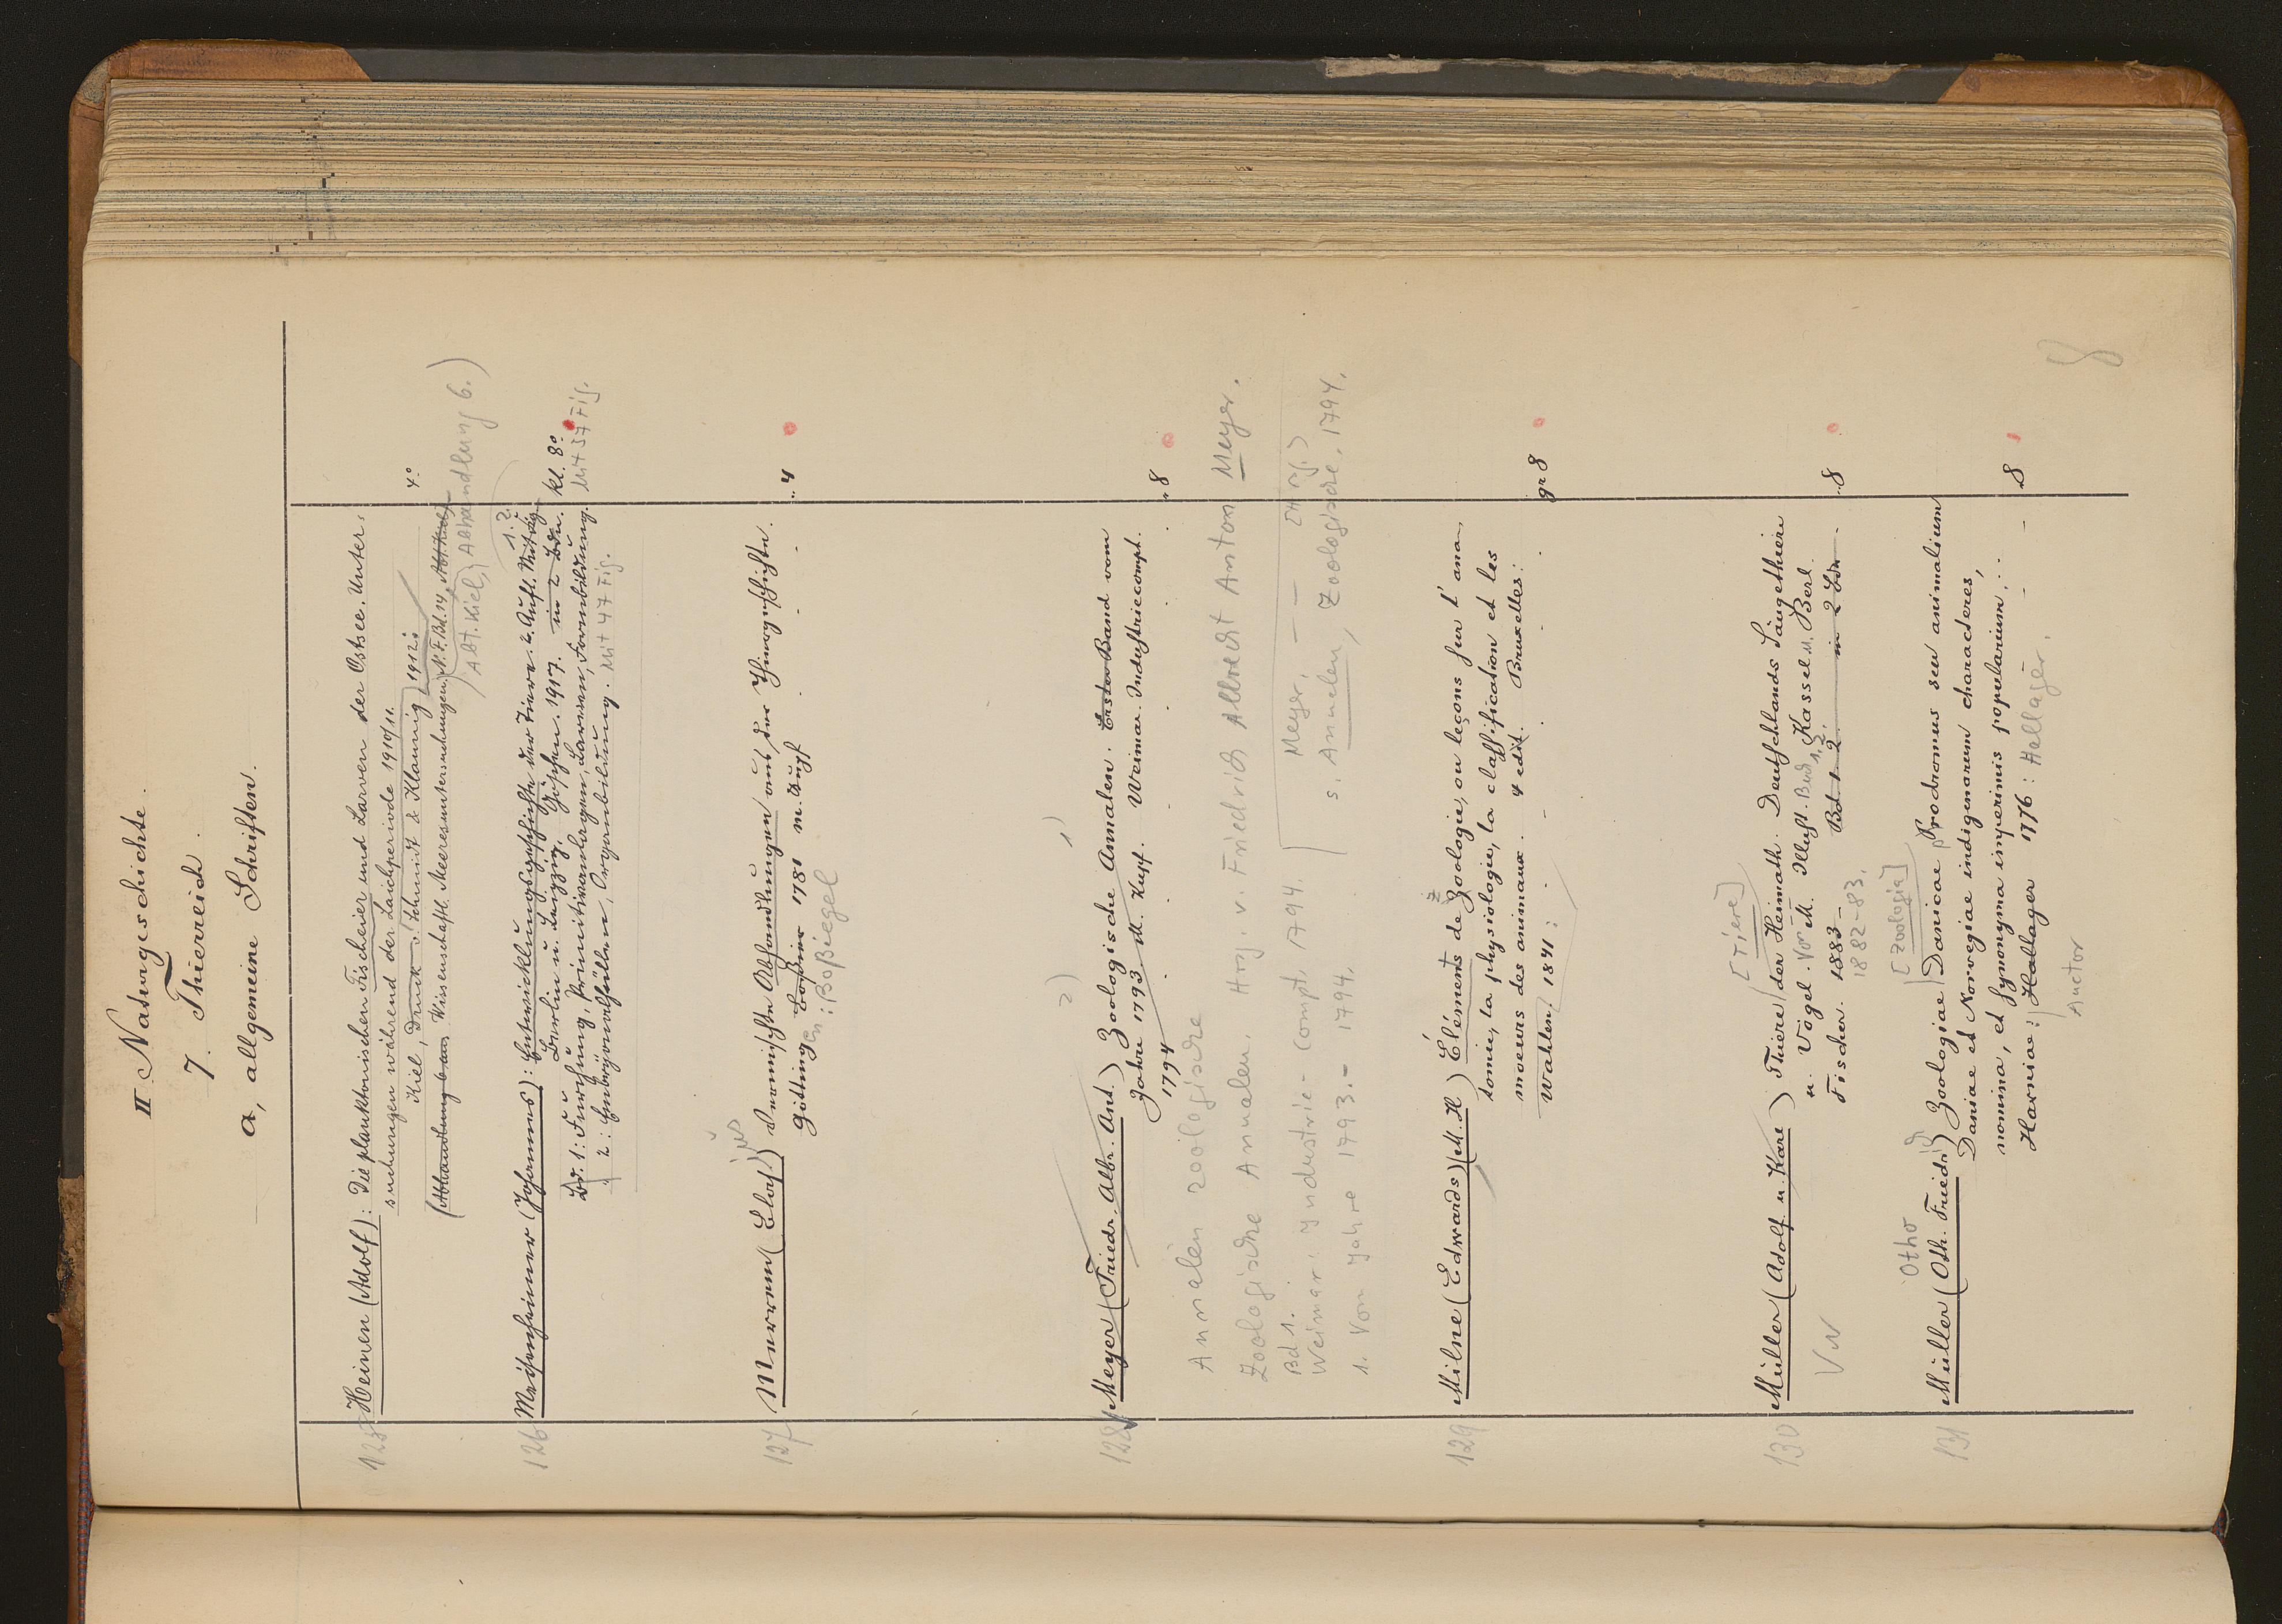 II Naturgeschichte.
7. Thierreich.
a, allgemeine Schriften.
125 Heinen (Adolf): Die planktonischen Fischeier und Larven der Ostsee. Unter-
suchungen während der Laichperiode 1910/11.
Kiel, Druck v. Schmidt & Klaunig 1912. 4°
(Abhandlung 6 aus Wissenschaftl. Meeresuntersuchungen, N. F. Bd. 14, Abt. Kiel)
Abt. Kiel, Abhandlung 6.)
126 Meisenheimer (Johannes): Entwicklungsgeschichte der Tiere. 2. Aufl.
1. 2.
Berlin u. Leipzig. Göschen. 1917. in 2 Bdn. kl. 8°
Bd. 1: Furchung, Primitivanlagen, Larven, Formbildung. Mit 37 Fig.
2: Embryonalhüllen, Organbildung. Mit 47 Fig.
127 Merrem (Blas) Vermischte Abhandlungen aus der Thiergeschichte.
ius
Götting 1781 m. Kupf 4
en: Boßiegel
1)
2)
128 Meyer (Friedr. Albr. Ant.) Zoologische Annalen. Erster Band vom
Jahre 1793. M. Kupf. Weimar. Industriecompt. 8
1794
Annalen zoologische
Zoologische Annalen. Hrsg. v. Friedrich Albrecht Anton Meyer.
Bd 1.
Weimar: Industrie-Compt. 1794.
1. Vom Jahre 1793.- 1794.
Meyer, - - [Hrsg.]
s. Annalen, Zoologische, 1794.
129 Milne (Edwards) (M. H.) Éléments de Zoologie, ou leçons sur l'ana-
tomie, la physiologie, la classification et les
moeurs des animaux. 4 edit. Bruxelles:
Wahlen, 1841: gr 8
[Tiere]
130 Müller (Adolf u. Karl) Thiere der Heimath. Deutschlands Säugethiere
u. Vögel. M. Illust. Bd 1, 2. Kassel u. Berl.
Fischer. 1883- Bd 1 2. in 2 Bdn 8
1882-83.
VN
[Zoologia]
Otho
131 Müller (Oth. Friedr.) Zoologiae Danicae Prodromus seu animalium
Daniae et Norvegiae indigenarum characteres,
nomina, et synonyma imperimis popularium.
Havniae: Hallager 1776: Hallager. 8
Auctor
8